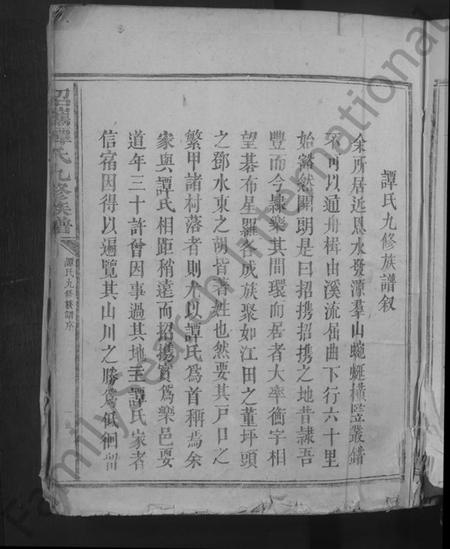 譚氏九修族譜叙
余所居近恩水發濛羣山蜿蜒橫亙叢錯
不可以通舟楫由溪流屈曲下行六十里
始豁然開朗是曰招攜招攜之地昔隷吾
豐而今隷樂其間環而居者大率衡宇相
望碁布星羅各成族聚如江田之董坪頭
之鄧水東之胡皆著姓也然要其戸口之
繁甲諸村落者則尤以譚氏為首稱焉余
家與譚氏相距稍遠而招攜實為樂邑要
道年三十許曾因事過其地主譚氏家者
信宿因得以遍覽其山川之勝為低徊留
招攜譚氏九修族譜
譚氏九修族譜序
Family Search International